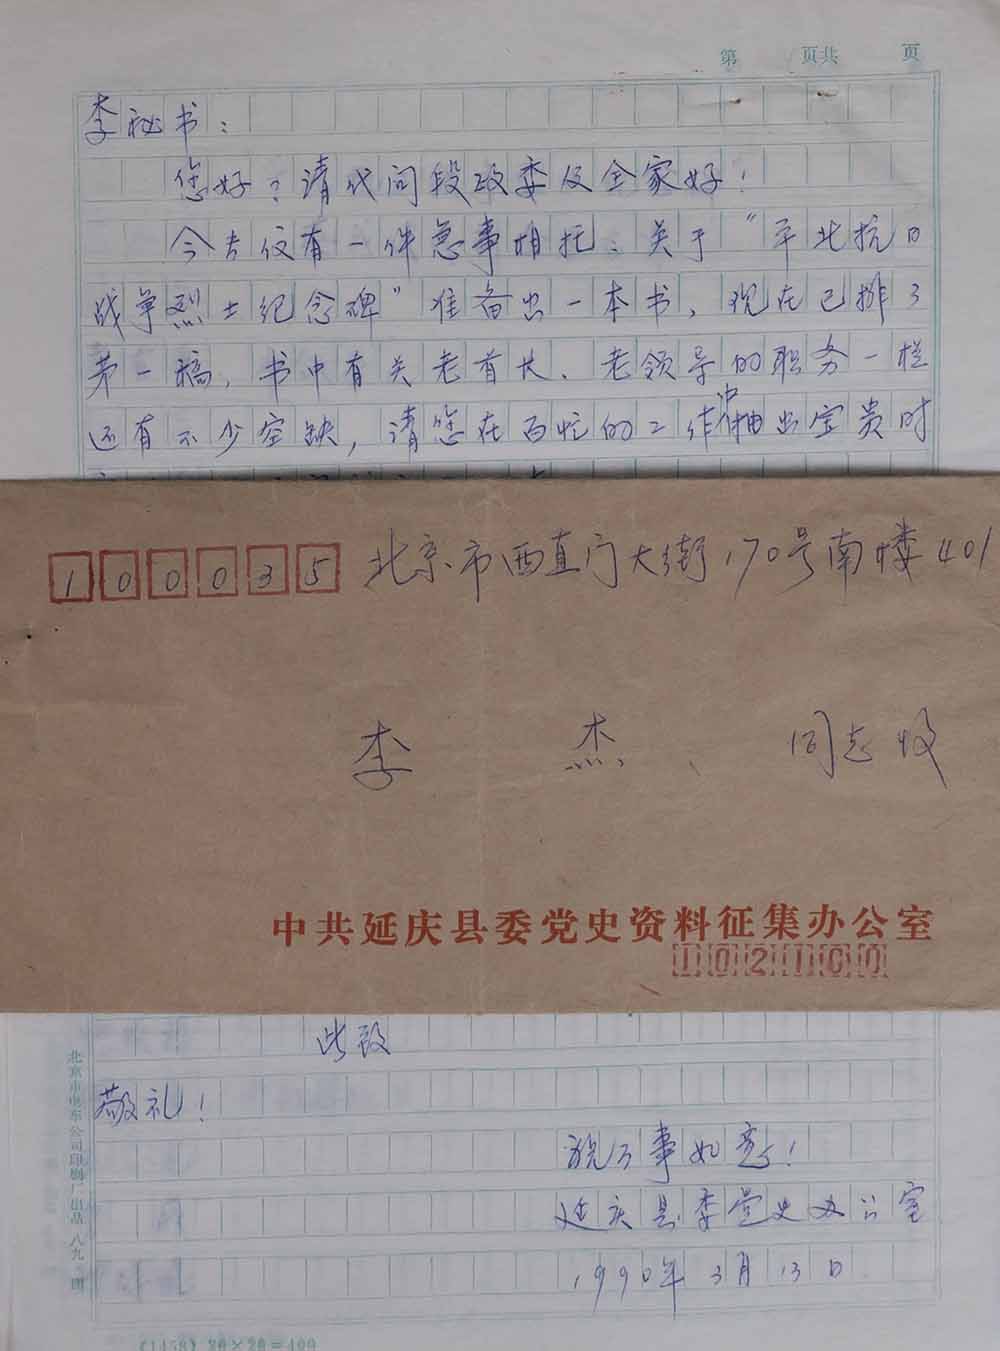 第 页共 页
李秘书：
您好？请代问段政委及全家好！
今去仅有一件急事相托、关于“平北抗日
战争烈士纪念碑”准备出一本书，现在已排了
第一稿，书中有关老首长、老领导的职务一栏
还有不少空缺，请您在百忙的工作中抽出宝贵时
100035 北京市西直门大街170号南楼401
李 杰 同志收
中共延庆县委党史资料征集办公室
102100
此致
敬礼！
祝万事如意！
延庆县委党史办公室
1990年3月13日
北京市电车公司印刷厂出品 八九·
(1459) 20×20=400